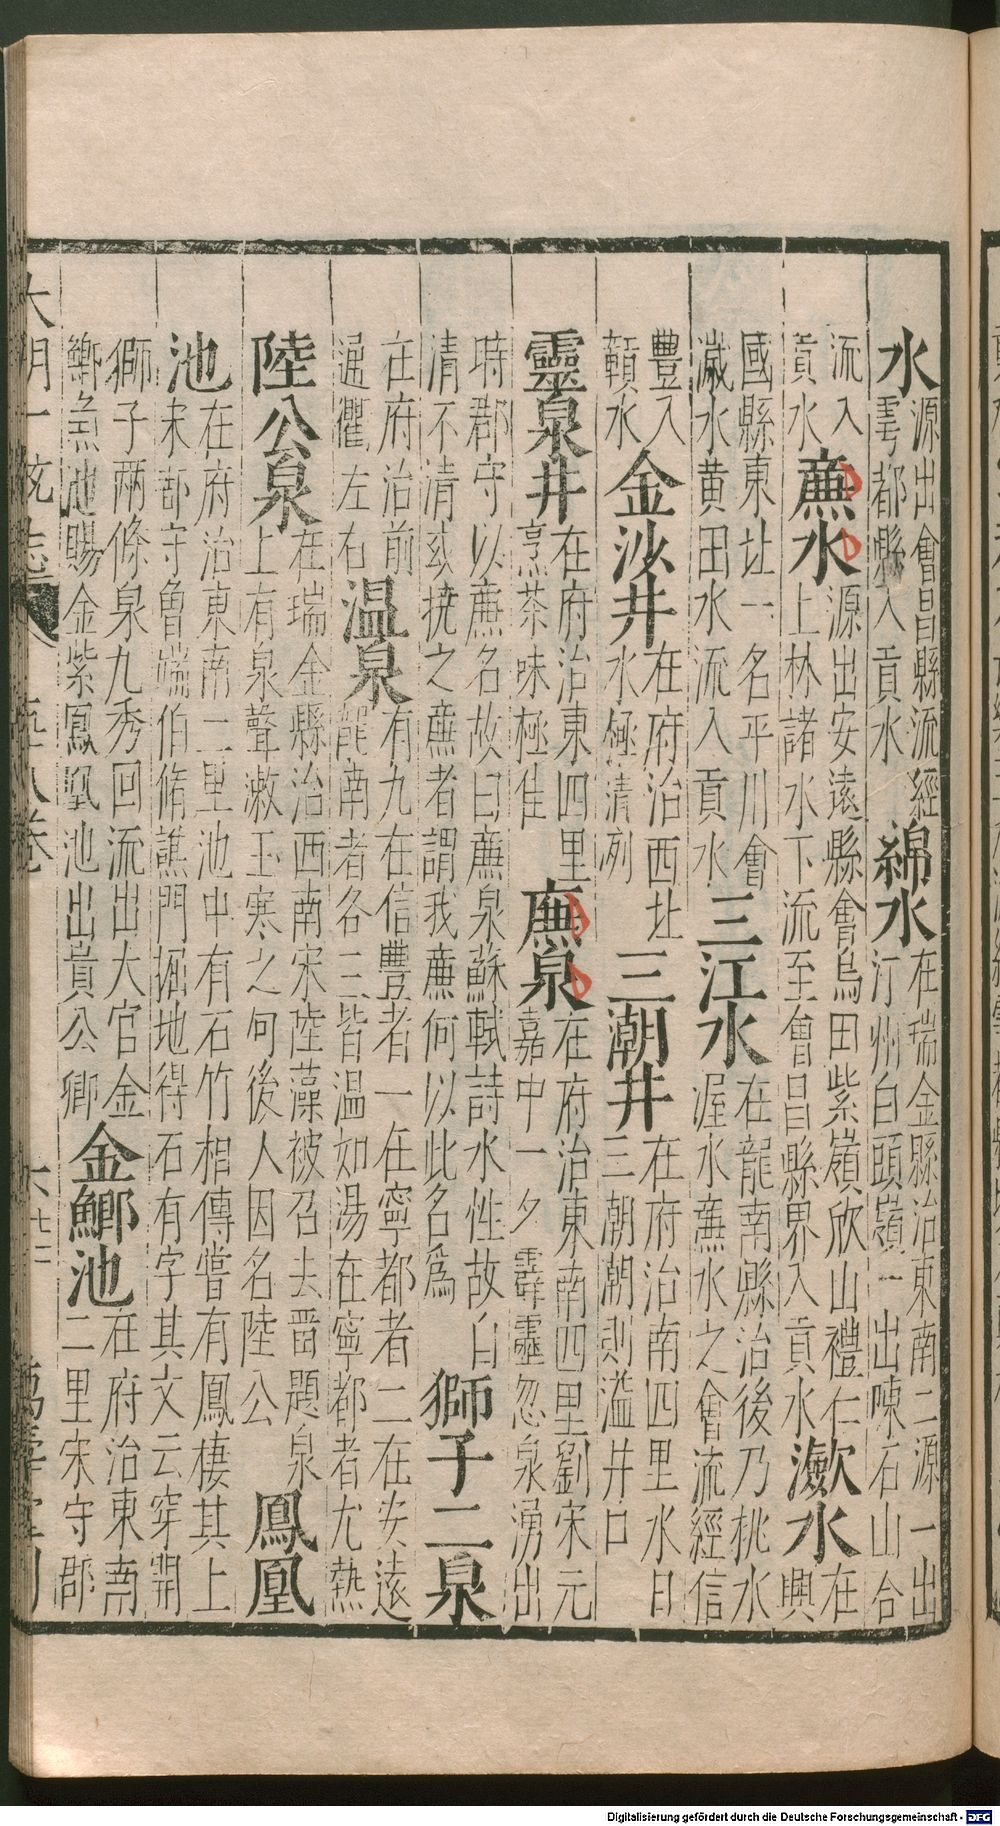 水 源出會昌縣流經雩都縣入貢水 綿水 在瑞金縣治東南二源一出汀州白頭嶺一出陳石山合
流入貢水 㢘水 源出安遠縣會烏田紫嶺欣山禮仁上林諸水下流至會昌縣界入貢水 㶑水 在興
國縣東北一名平川會濊水黄田水流入貢水 三江水 在龍南縣治後乃桃水渥水㢘水之會流經信
豐入贑水 金沙井 在府治西北水極清冽 三潮井 在府治南四里水日三朝潮則溢井口
靈泉井 在府治東四里烹茶味極佳 㢘泉 在府治東南四里劉宋元嘉中一夕霹靂忽泉湧出
時郡守以㢘名故曰㢘泉蘇軾詩水性故自清不清或撓之㢘者謂我㢘何以此名為 獅子二泉
在府治前通衢左右 温泉 有九在信豐者一在寧都者二在安遠龍南者各三皆温如湯在寧都者尤熱
陸公泉 在瑞金縣治西南宋陸藻被召去畱題泉上有泉聲漱玉寒之句後人因名陸公 鳳凰
池 在府治東南二里池中有石竹相傳嘗有鳳棲其上宋郡守魯端伯脩譙門掘地得石有字其文云穿開
獅子兩條泉九秀回流出大官金鯽魚池賜金紫鳳凰池出貴公卿 金鯽池 在府治東南二里宋守郡
大明一統志 五十八卷 六 廿二 萬壽堂刊
Digitalisierung gefördert durch die Deutsche Forschungsgemeinschaft - DFG